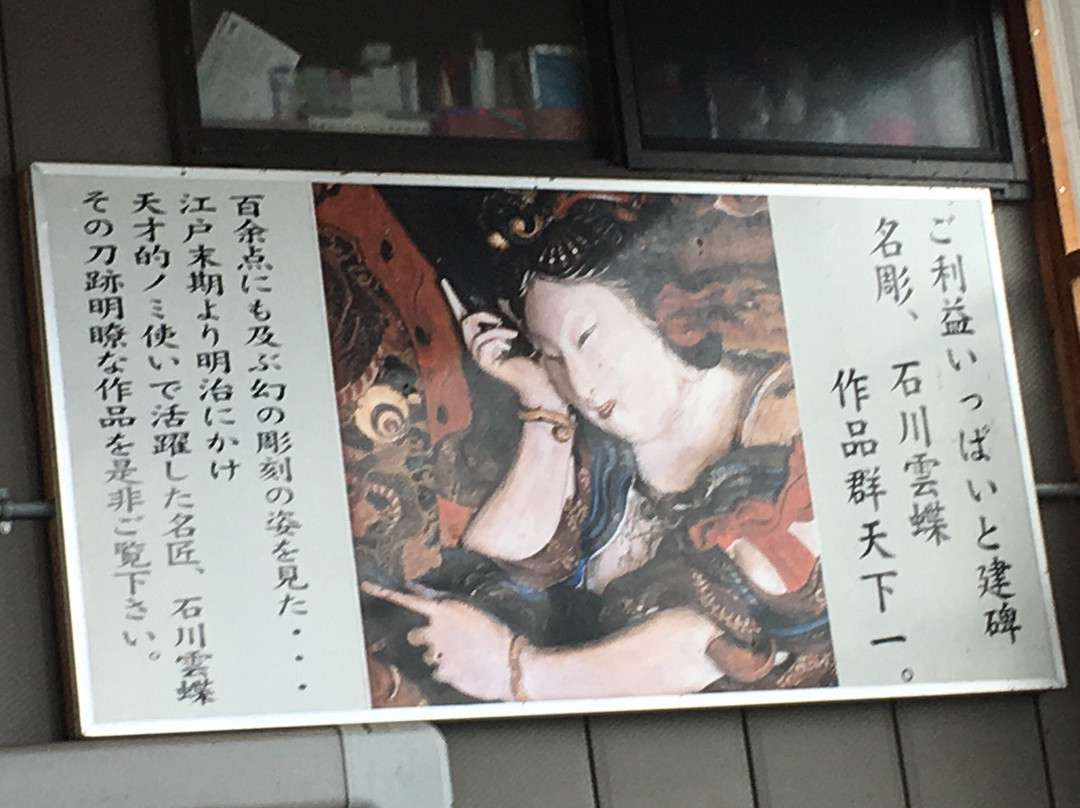 ご利益いっぱいと建碑
名彫、石川雲蝶
作品群天下一。
百余点にも及ぶ幻の彫刻の姿を見た・・・
江戸末期より明治にかけ
天才的ノミ使いで活躍した名匠、石川雲蝶
その刀跡明瞭な作品を是非ご覧下さい。